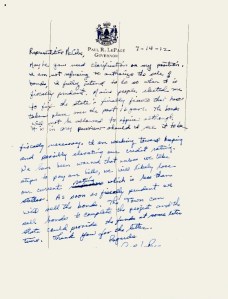 PAUL R. LEPAGE
GOVERNOR
3-14-12
Representative
Maybe you need clarification on my position.
I am not refusing to authorize the sale of
bonds. I fully intend to do so when it is
fiscally prudent. Maine people elected me
to fix the state's fiscal
taken place over the past years. The bonds
will not be released to
It is in my I see it to be
fiscally necessary. I am working toward keeping
and possibly elevating our credit rating.
We have been warned that unless we take
steps to pay our bills, we will likely lose
our current rating which is less than
As soon as fiscally prudent we
will sell the bonds. The Town can
sell bonds to complete the project and the
state could provide the funds at some later
time. Thank you for the letter.
Regards